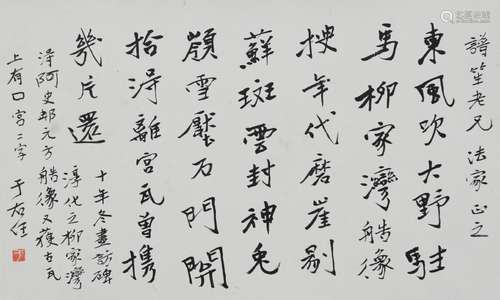 笙老兄 法家正之
東風吹大野駐
馬柳家灣艁像
搜年代磨崖剔
蘚斑雲封神兔
嶺雪壓石門關
拾淂離宮瓦曾攜
幾片還 十年冬盡訪碑
淳化之柳家灣
淂阿史那元方艁像又獲古瓦
上有口宮二字 于右任